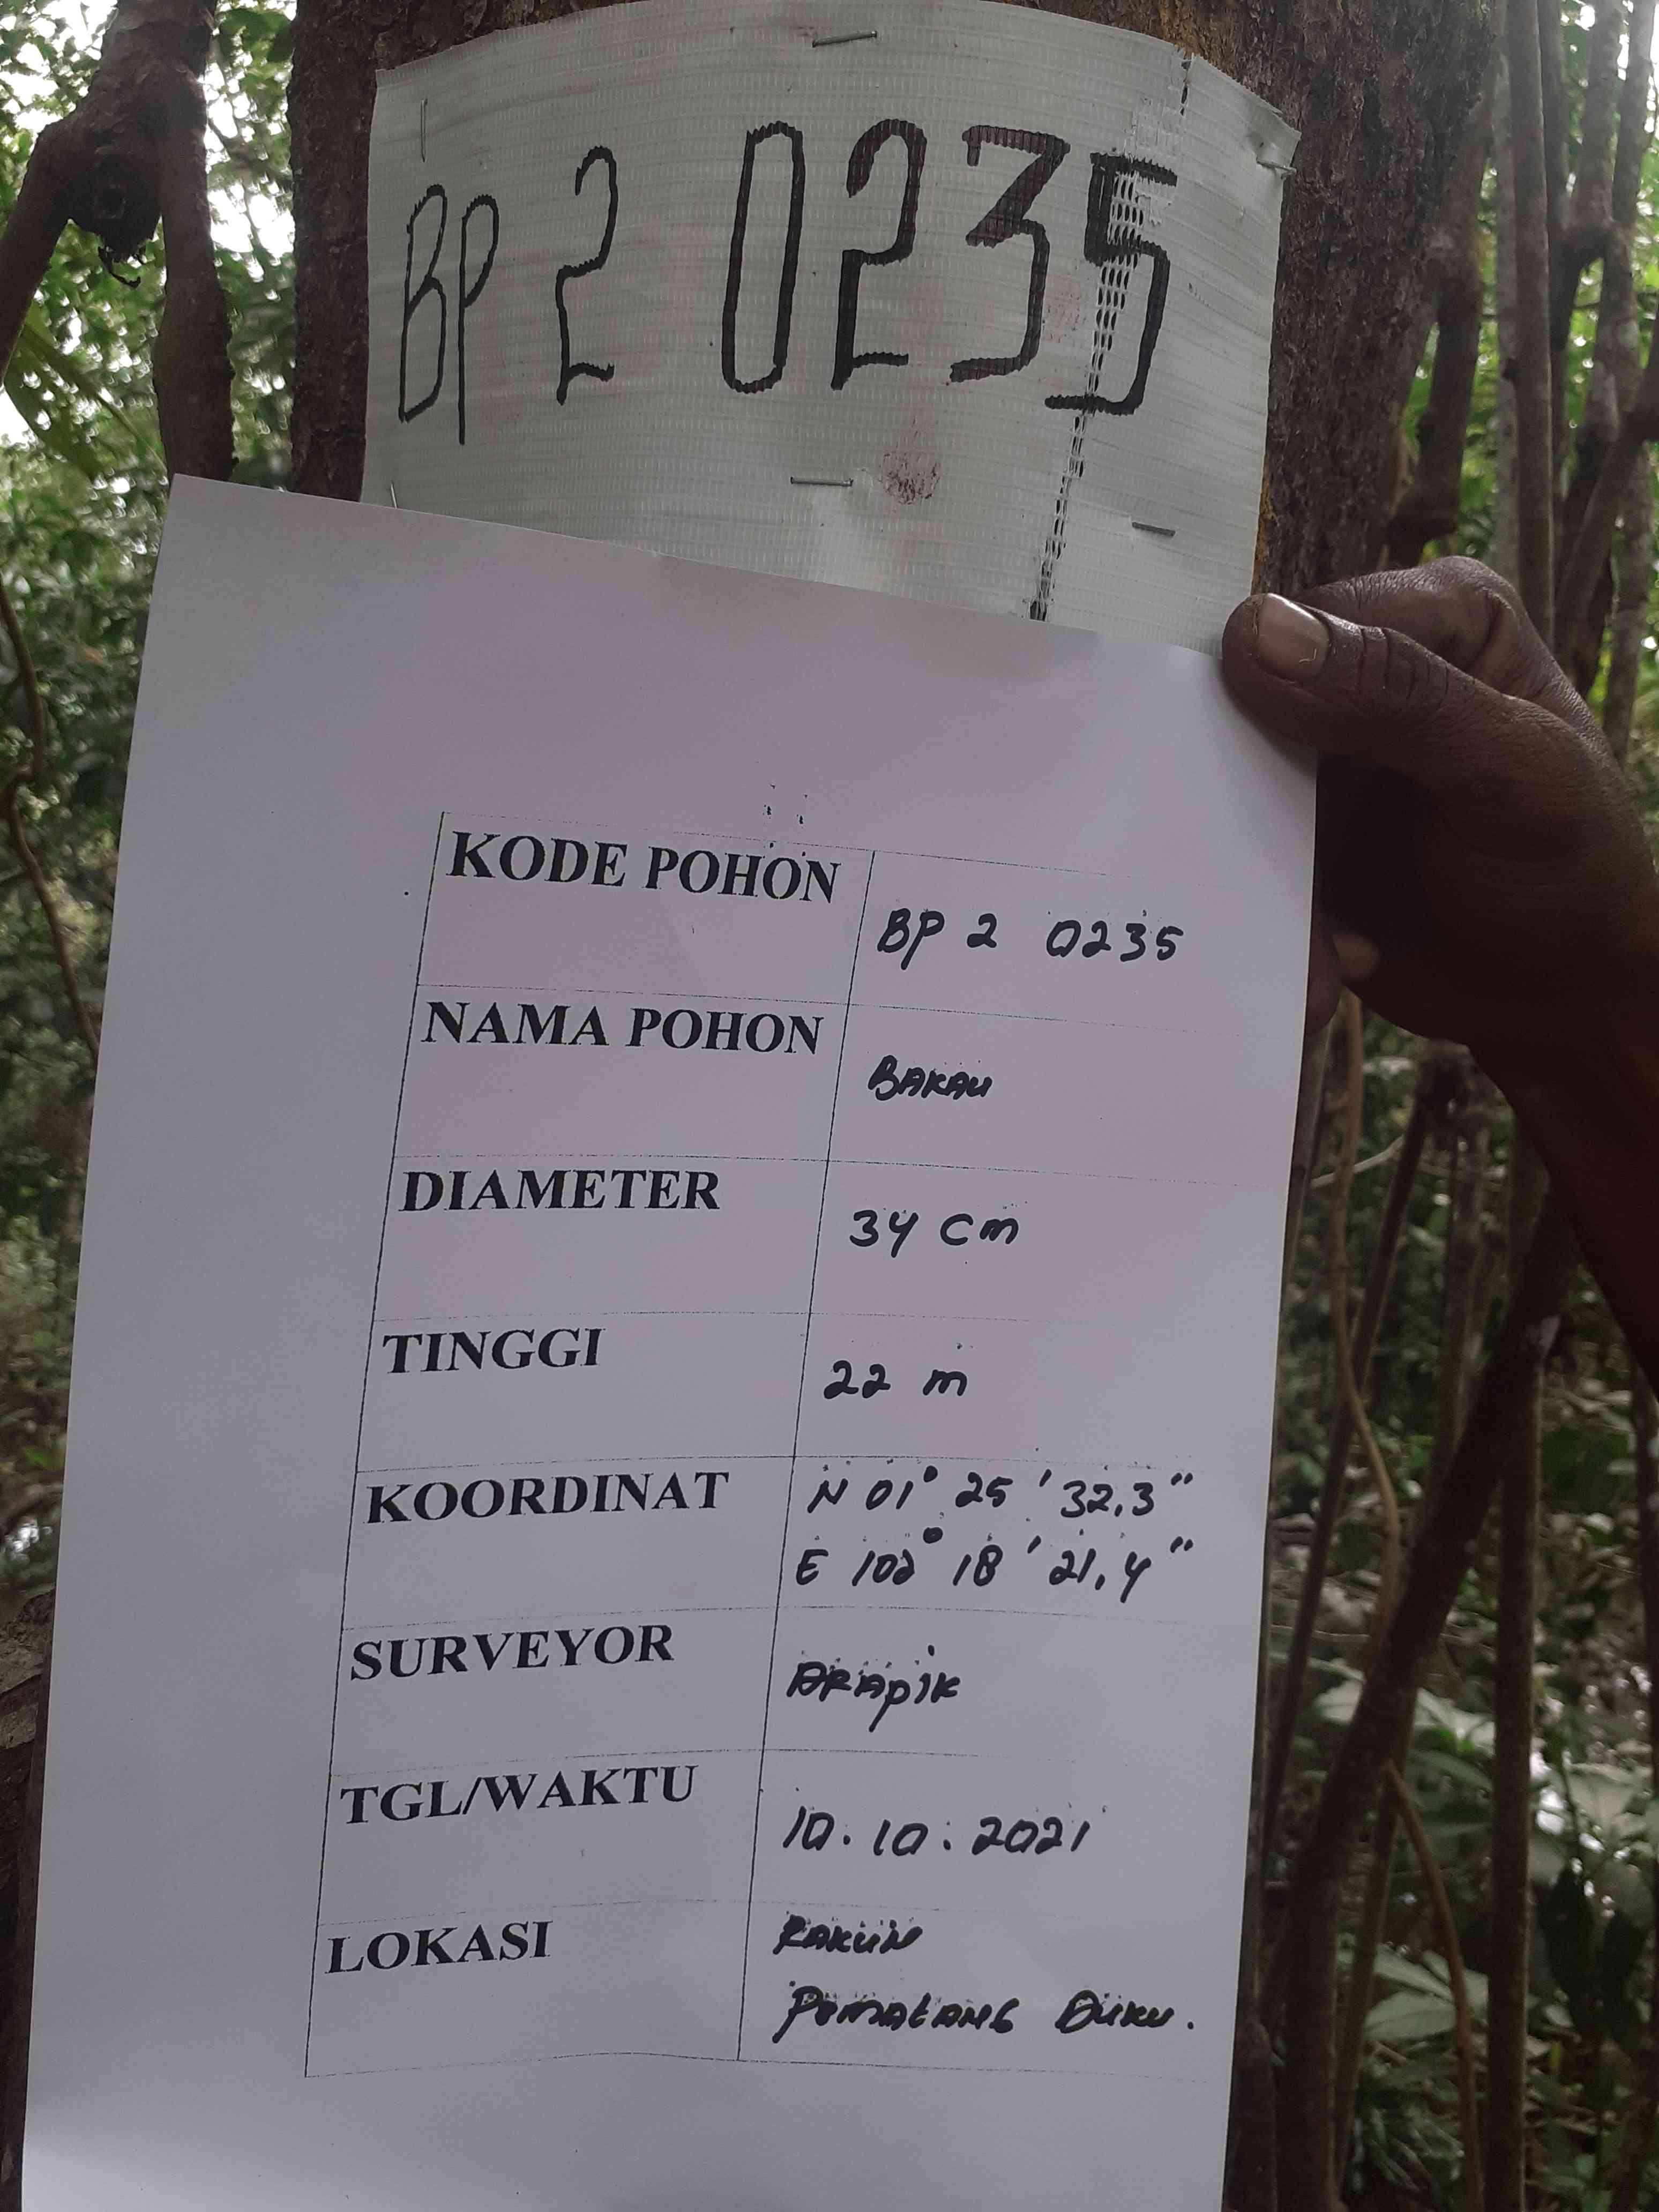 BP 2 0235
KODE POHON
BP 2 0235
NAMA POHON
BAKAU
DIAMETER
34 cm
TINGGI
22 m
KOORDINAT
N 01° 25 ' 32,3"
E 102° 18 ' 21,4"
SURVEYOR
ARAPIK
TGL/WAKTU
10.10.2021
LOKASI
RAKUN
PEMATANG DUKU.